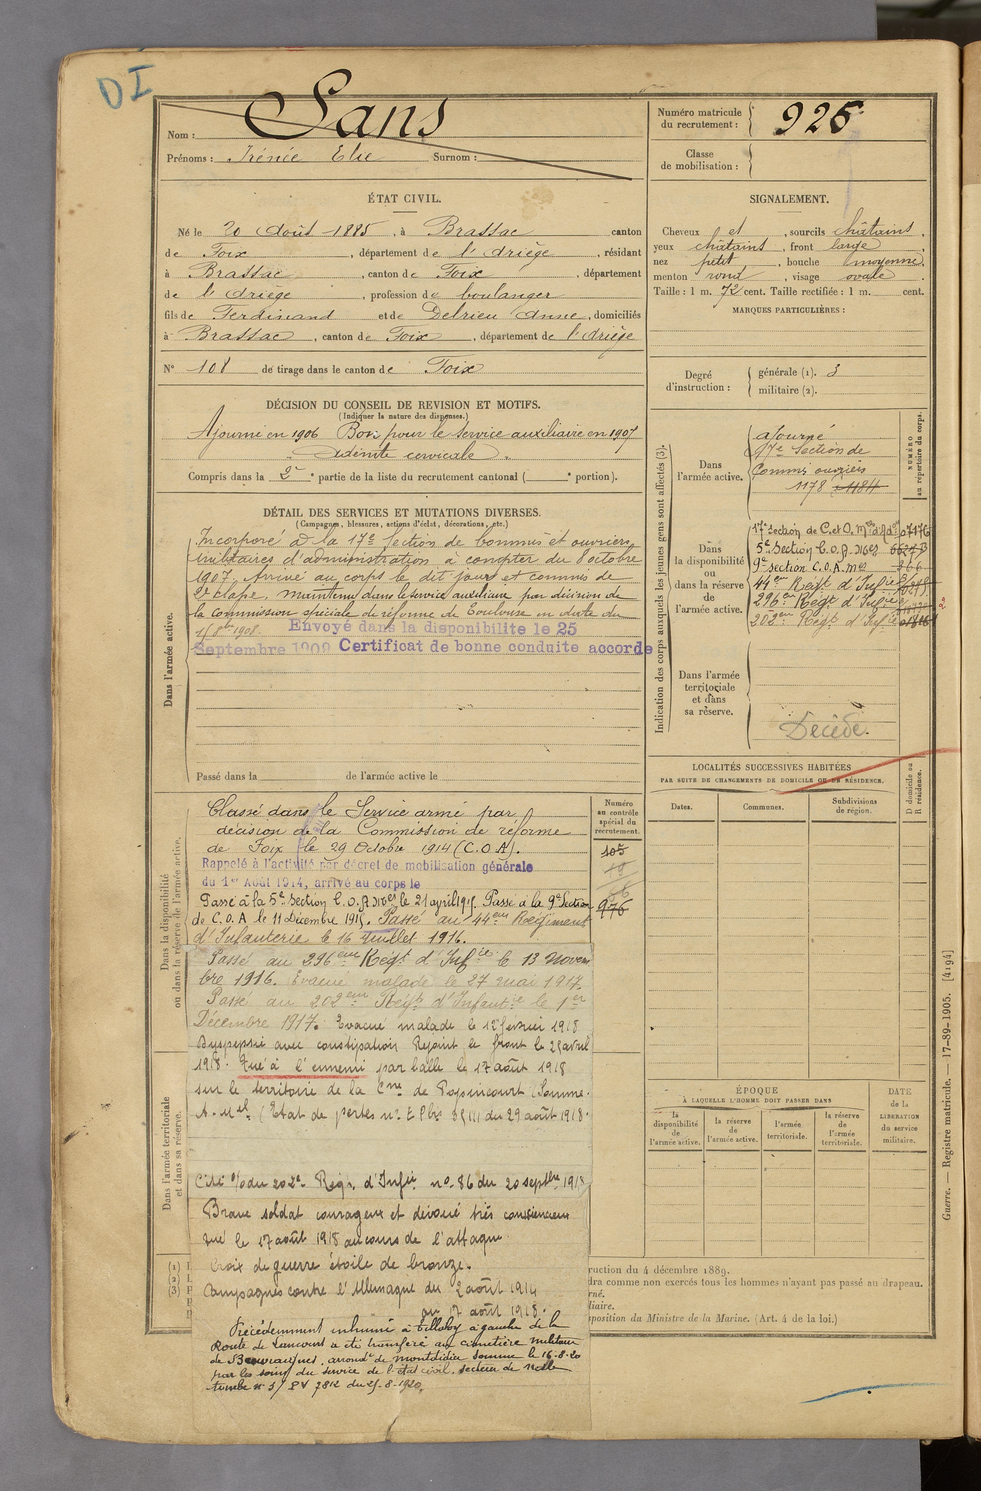 DI
Nom : Sans
Prénoms : Irénée Elie Surnom :
Numéro matricule du recrutement : 925
Classe de mobilisation :
ÉTAT CIVIL.
Né le 20 Août 1885, à Brassac canton
de Foix, département de l'Ariège, résidant
à Brassac, canton de Foix, département
de l'Ariège, profession de boulanger
fils de Ferdinand et de Delrieu Anne, domiciliés
à Brassac, canton de Foix, département de l'Ariège
N° 108 de tirage dans le canton de Foix
SIGNALEMENT.
Cheveux et, sourcils châtains,
yeux châtains, front large
nez petit, bouche moyenne,
menton rond, visage ovale
Taille : 1 m. 72 cent. Taille rectifiée : 1 m. cent.
MARQUES PARTICULIÈRES :
Degré d'instruction : générale (1). 3
militaire (2).
DÉCISION DU CONSEIL DE REVISION ET MOTIFS.
(Indiquer la nature des dispenses.)
Ajourné en 1906 Bon pour le service auxiliaire en 1907
Adénite cervicale.
Compris dans la 2e partie de la liste du recrutement cantonal ( e portion).
DÉTAIL DES SERVICES ET MUTATIONS DIVERSES.
(Campagnes, blessures, actions d'éclat, décorations, etc.)
Dans l'armée active.
Incorporé à la 17e Section de commis et ouvriers
militaires d'administration à compter du 8 octobre
1907. Arrivé au corps le dit jour et commis de
2e classe, maintenu dans le service auxiliaire par décision de
la commission spéciale de réforme de Toulouse en date du
1908. Envoyé dans la disponibilite le 25
Septembre 1909 Certificat de bonne conduite accordé
Passé dans la de l'armée active le
Indication des corps auxquels les jeunes gens sont affectés (3).
Dans l'armée active.
ajourné
17e Section de
Commis ouvriers
1178 1184
NUMÉRO au répertoire du corps.
Dans la disponibilité ou dans la réserve de l'armée active.
17e Section de C. et O.
5e Section C.O.A.
9e section C.O.A.
44e Régt d'Infie
296e Régt d'Infie
202e Régt d'Infie
Dans l'armée territoriale et dans sa réserve.
Décédé.
LOCALITÉS SUCCESSIVES HABITÉES
PAR SUITE DE CHANGEMENTS DE DOMICILE OU DE RÉSIDENCE.
Dates. Communes. Subdivisions de région. D domicile ou R résidence.
Dans la disponibilité ou dans la réserve de l'armée active.
Numéro au contrôle spécial du recrutement.
105
976
Classé dans le Service armé par
décision de la Commission de réforme
de Foix le 29 Octobre 1914 (C.O.A).
Rappelé à l'activité par décret de mobilisation générale
du 1er Août 1914, arrivé au corps le
Passé à la 5e Section C.O.A. le 21 avril 1915. Passé à la 9e Section
de C.O.A le 11 Décembre 1915. Passé au 44eme Régiment
d'Infanterie le 16 Juillet 1916.
Passé au 296eme Régt d'Infie le 13 Novem
bre 1916. Evacué malade le 27 mai 1917.
Passé au 202eme Régt d'Infantie le 1er
Décembre 1917. Evacué malade le 12 février 1918
Dyspepsie avec constipation Rejoint le front le 29 avril
1918. Tué à l'ennemi par balle le 17 août 1918
sur le territoire de la Cne de Popincourt (Somme.
du 29 août 1918.
Dans l'armée territoriale et dans sa réserve.
Cité O/ du 202e Régt d'Infie n° 86 du 20 septbre 1918
Brave soldat courageux et dévoué très consciencieux
tué le 17 août 1918 au cours de l'attaque.
Croix de guerre étoile de bronze.
Campagnes contre l'Allemagne du 2 août 1914
au 17 août 1918.
Précédemment inhumé à Tilloloy à gauche de la
Route de Lancourt a été transféré au cimetière militaire
de Beuvraignes. arrondt de montdidier somme le 16-8-20
par les soins du service de l'état civil. secteur de
tombe n° PV 7812 du 25-8-1920.
ÉPOQUE
À LAQUELLE L'HOMME DOIT PASSER DANS
la disponibilité de l'armée active. la réserve de l'armée active. l'armée territoriale. la réserve de l'armée territoriale.
DATE de la LIBÉRATION du service militaire.
(1) I
(2) I
(3) P
ruction du 4 décembre 1889.
dra comme non exercés tous les hommes n'ayant pas passé au drapeau.
rné.
liaire.
position du Ministre de la Marine. (Art. 4 de la loi.)
Guerre. — Registre matricule. — 17-89-1905. [4194]